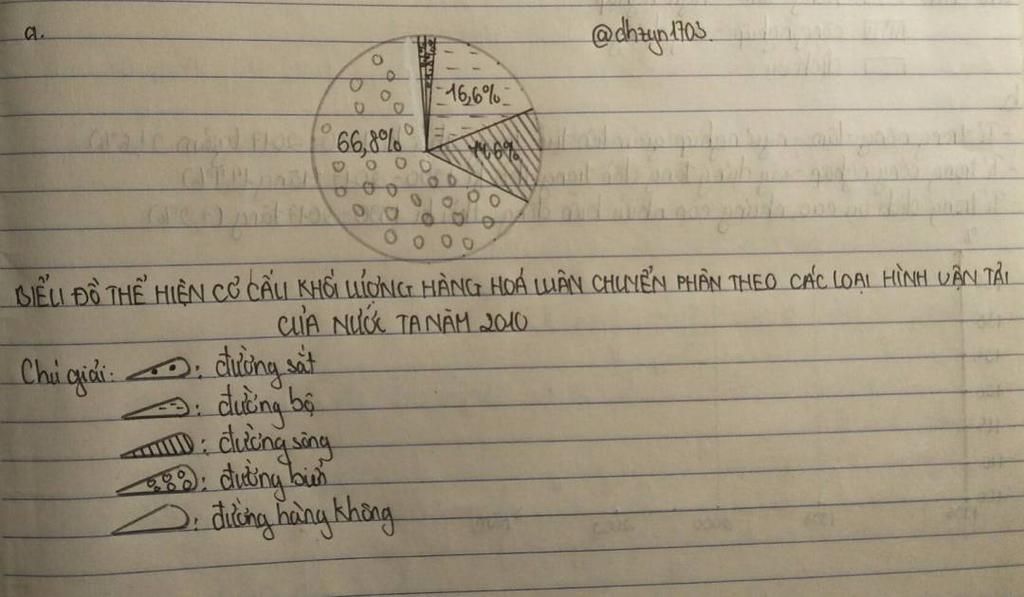 a.
@dhzyn1703.
16,6%
66,8%
14,6%
BIỂU ĐỒ THỂ HIỆN CƠ CẤU KHỐI LƯỢNG HÀNG HOÁ LUÂN CHUYỂN PHÂN THEO CÁC LOẠI HÌNH VẬN TẢI
CỦA NƯỚC TA NĂM 2010
Chú giải: : đường sắt
: đường bộ
: đường sông
: đường biển
: đường hàng không